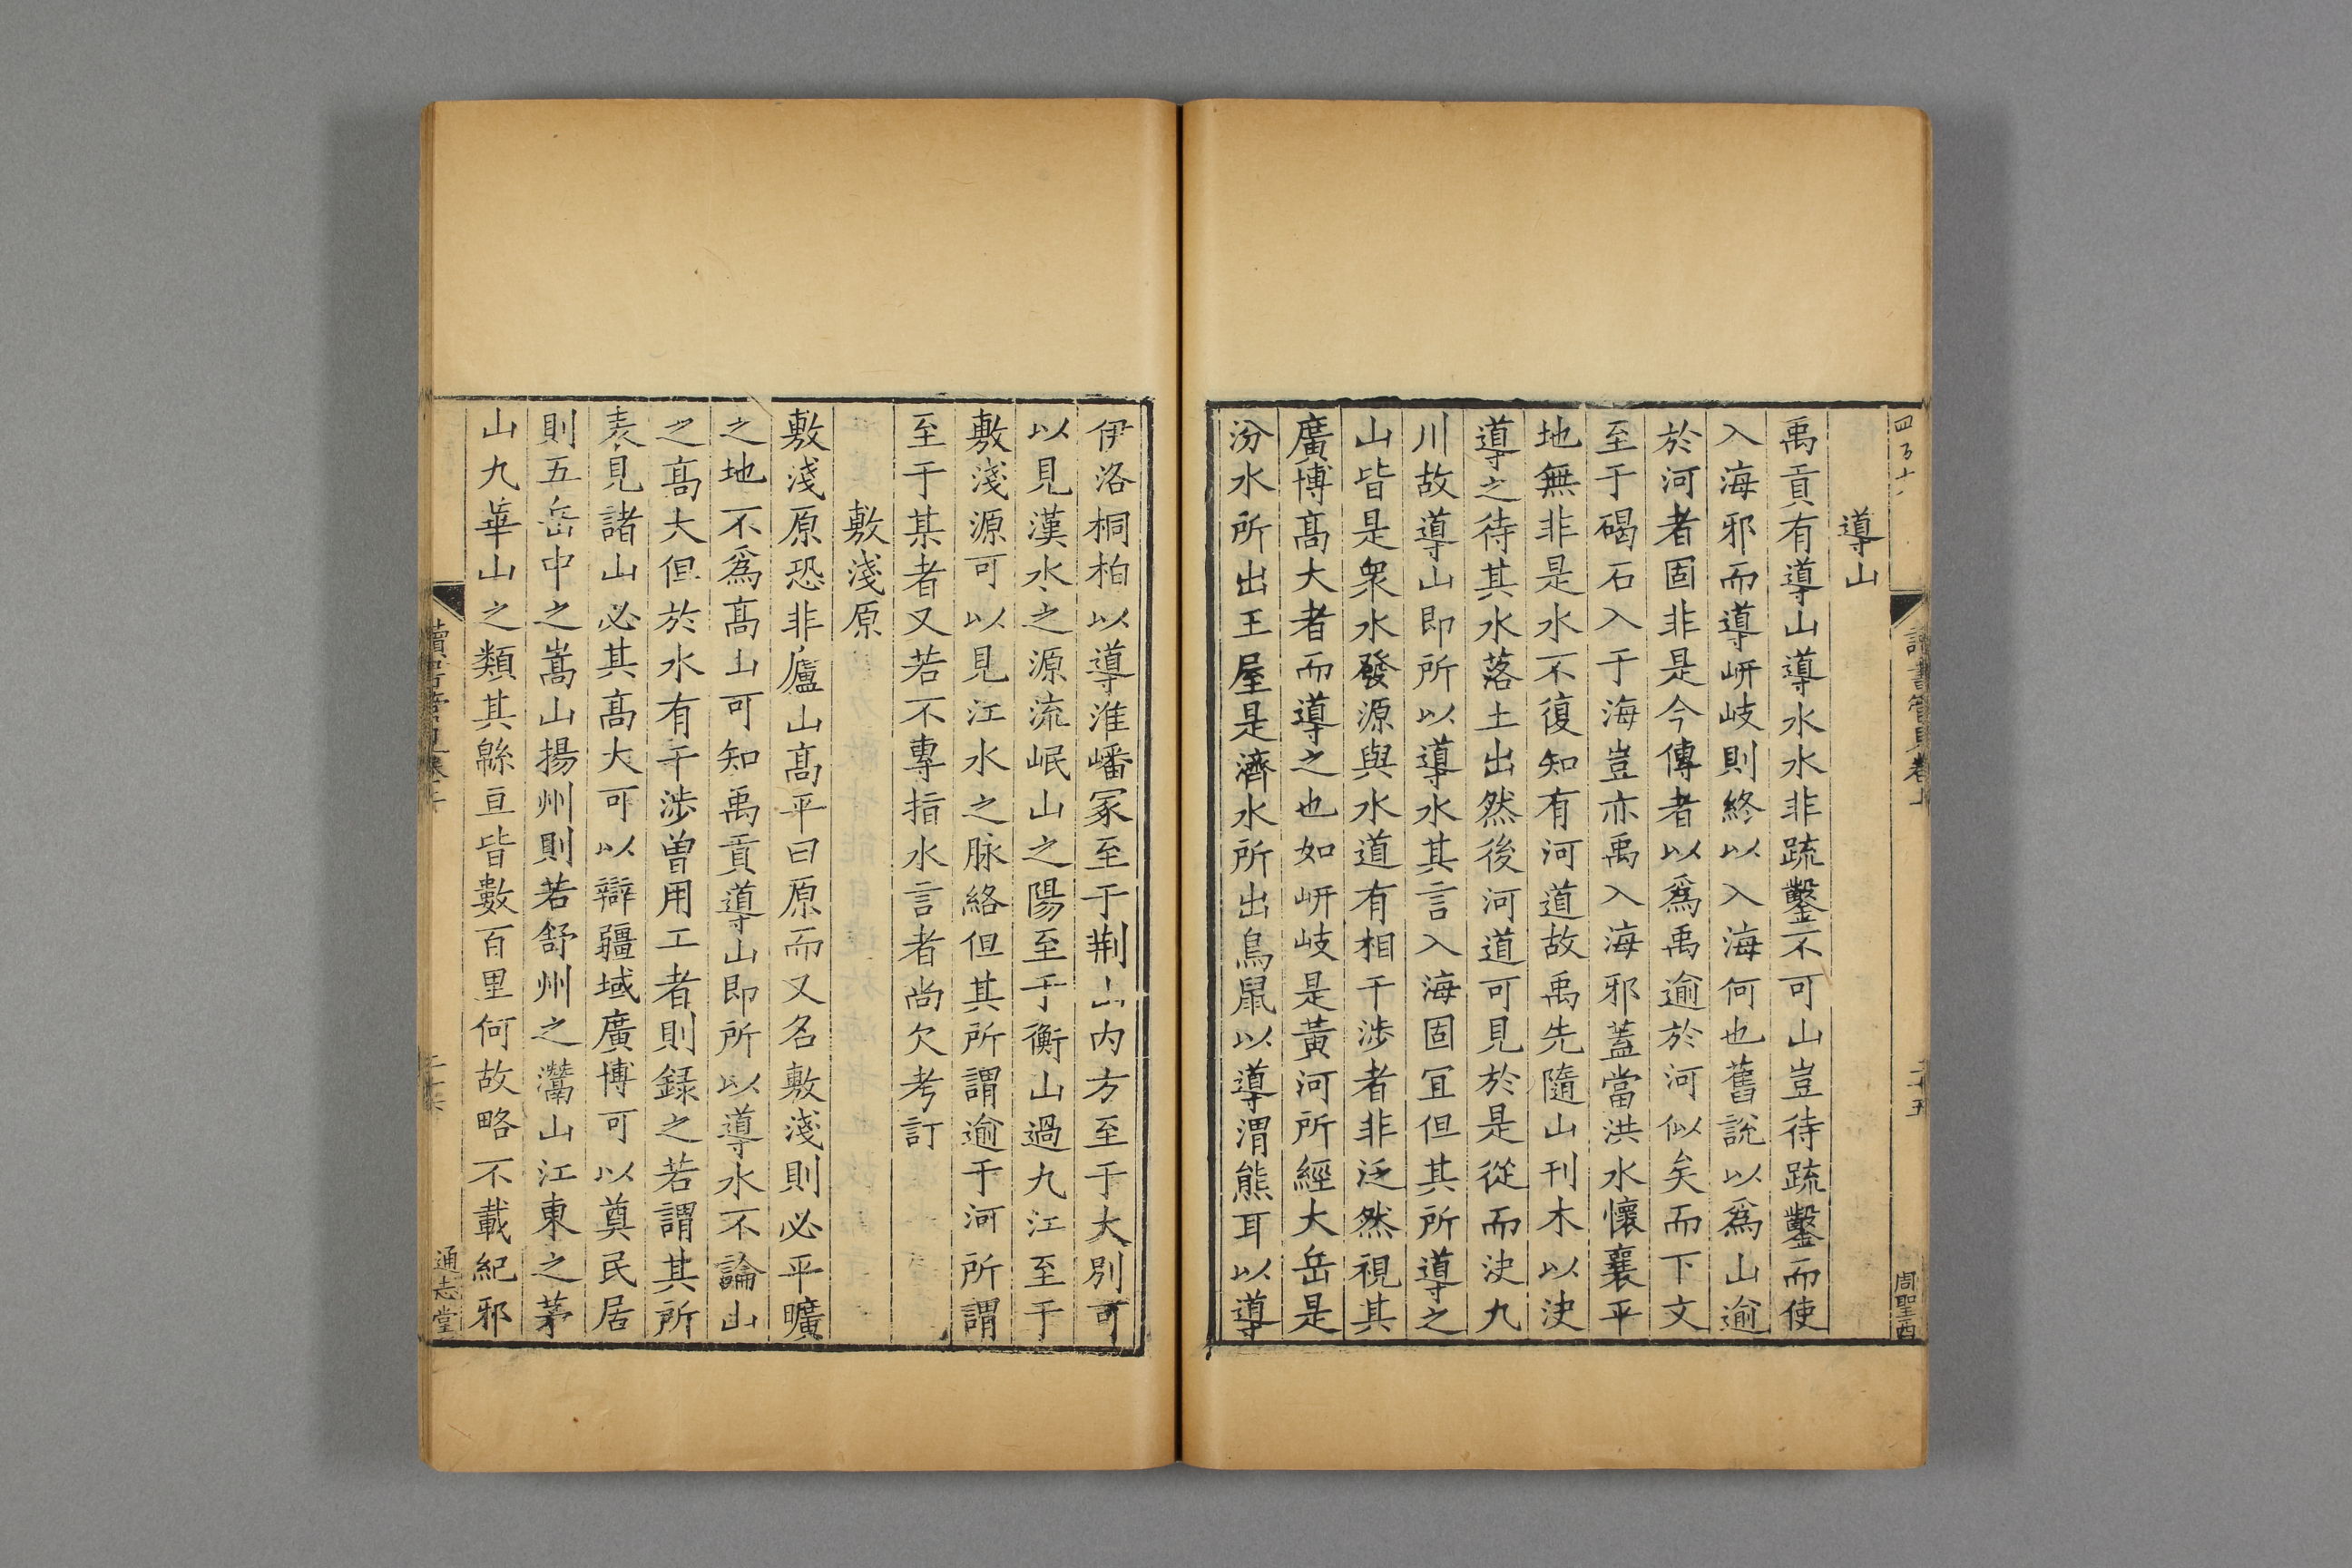 導山
禹貢有導山導水水非疏鑿不可山豈待疏鑿而使
入海邪而導岍岐則終以入海何也舊說以爲山逾
於河者固非是今傳者以爲禹逾於河似矣而下文
至于碣石入于海豈亦禹入海邪蓋當洪水懷襄平
地無非是水不復知有河道故禹先隨山刊木以決
導之待其水落土出然後河道可見於是從而决九
川故導山即所以導水其言入海固冝但其所導之
山皆是衆水發源與水道有相干涉者非泛然視其
廣博髙大者而導之也如岍岐是黃河所經大岳是
汾水所出王屋是濟水所出鳥鼠以導渭熊耳以導
伊洛桐柏以導淮嶓冢至于荆山内方至于大别可
以見漢水之源流岷山之陽至于衡山過九江至于
敷淺源可以見江水之脉絡但其所謂逾于河所謂
至于某者又若不專指水言者尚欠考訂
敷淺原
敷淺原恐非廬山髙平曰原而又名敷淺則必平曠
之地不爲髙山可知禹貢導山即所以導水不論山
之髙大但於水有干涉曽用工者則録之若謂其所
表見諸山必其髙大可以辯疆域廣博可以奠民居
則五岳中之嵩山揚州則若舒州之灊山江東之茅
山九華山之類其緜亘皆數百里何故略不載紀邪
讀書管見卷上
二十五
周聖酉
通志堂